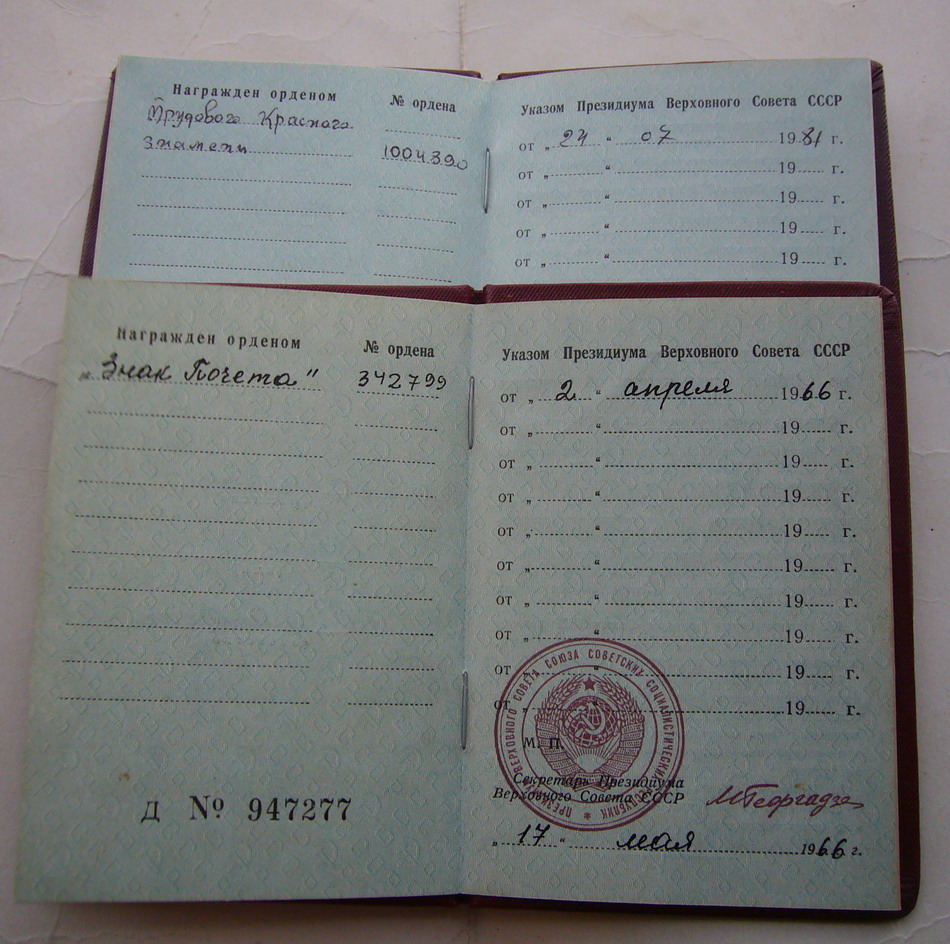 Награжден орденом № ордена
Трудового Красного
Знамени 1004390
Указом Президиума Верховного Совета СССР
от „ 24 “ 07 1981 г.
от „ “ 19 г.
от „ “ 19 г.
от „ “ 19 г.
от „ “ 19 г.
Награжден орденом № ордена
„Знак Почета" 342799
Д № 947277
Указом Президиума Верховного Совета СССР
от „ 2 “ апреля 1966 г.
от „ “ 19 г.
от „ “ 19 г.
от „ “ 19 г.
от „ “ 19 г.
от „ “ 19 г.
от „ “ 19 г.
от „ “ 19 г.
от „ “ 19 г.
от „ “ 19 г.
ПРЕЗИДИУМ ВЕРХОВНОГО СОВЕТА СОЮЗА СОВЕТСКИХ СОЦИАЛИСТИЧЕСКИХ РЕСПУБЛИК
М. П.
Секретарь Президиума
Верховного Совета СССР МГеоргадзе
„ 17 “ мая 1966 г.